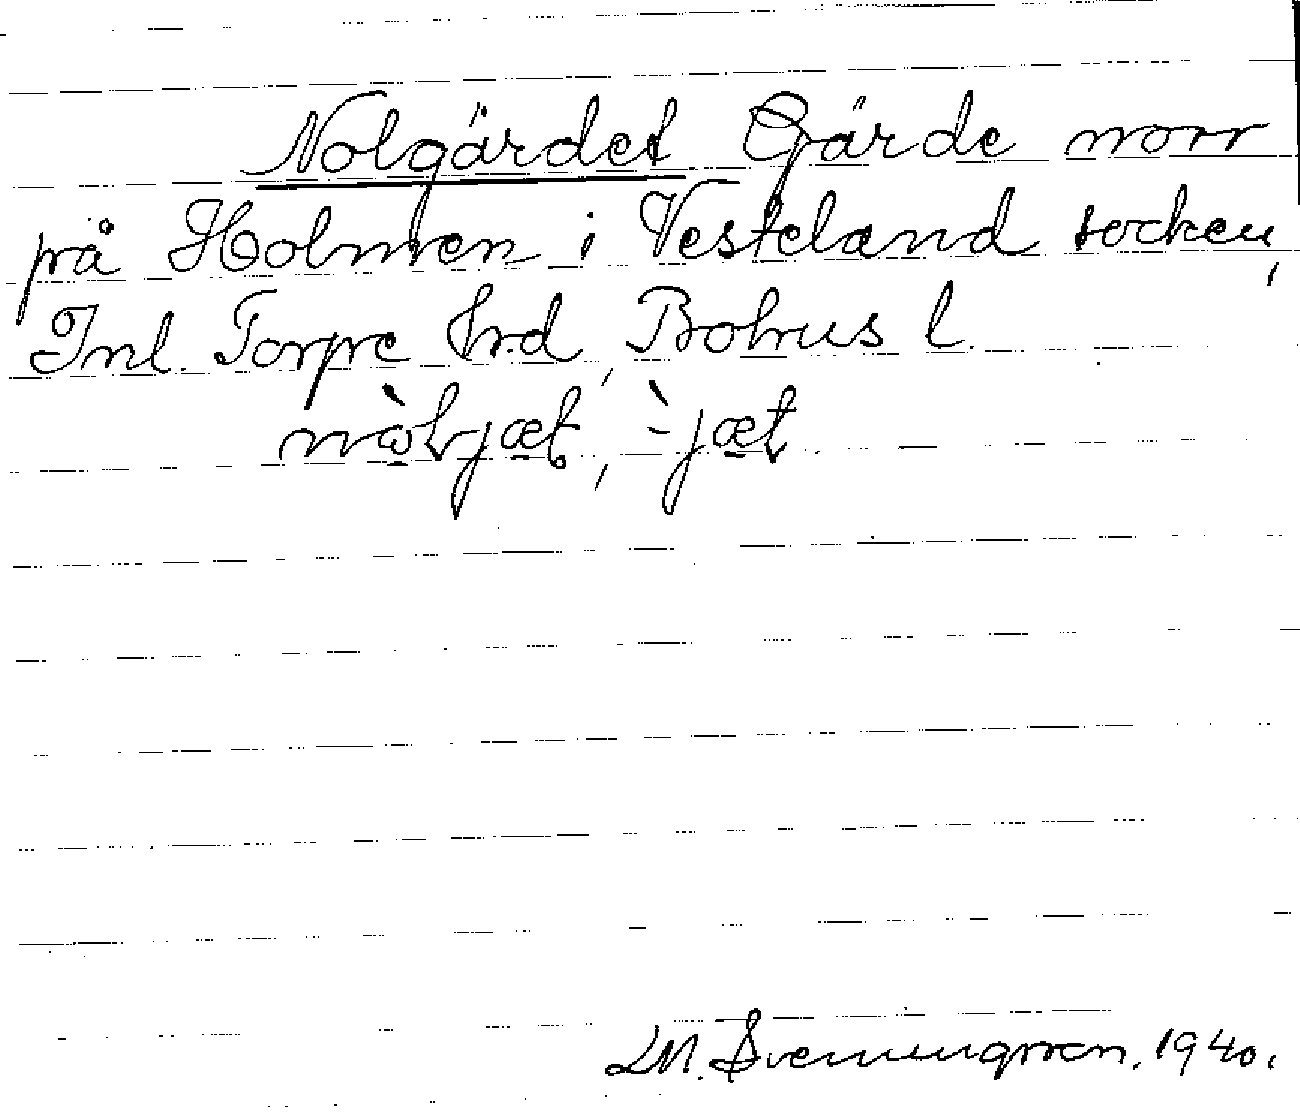 Nolgärdet Gärde norr
på Holmen i Vesteland socken,
Inl. Torpe hrd, Bohus l.
nòljæt, -̀jæt.
LM. Svenungsson. 1940.